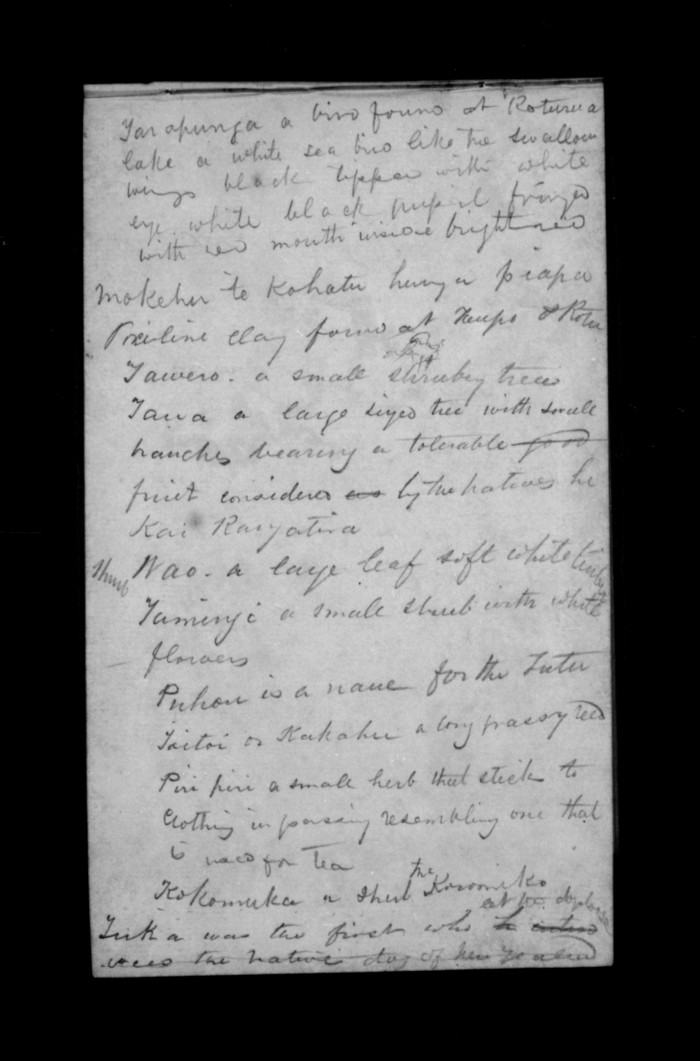 Tarapunga a bird found at Roturua
lake a white sea bird like the swallow
wings black tipped with white
eye white black pupil fringed
with red mouth inside bright red
Mokehu te Kohatu hunga piapa
clay found at Taupo & Rotu
Tawero. a small shrubby tree
Tawa a large sized tree with small
branches bearing a tolerable good
fruit considered as by the natives he
Kai Rangatira
Shrub Wao. a large leaf soft white
Taminji a small shrub with white
flowers
Puhou is a name for the Tutu
Toitoi or Kakahu a long grassy reed
Piri piri a small herb that stick to
clothing in passing resembling one that
is used for Tea
Kokomuka a shrub the Koromiko
was the first who
the native dog of New Zealand